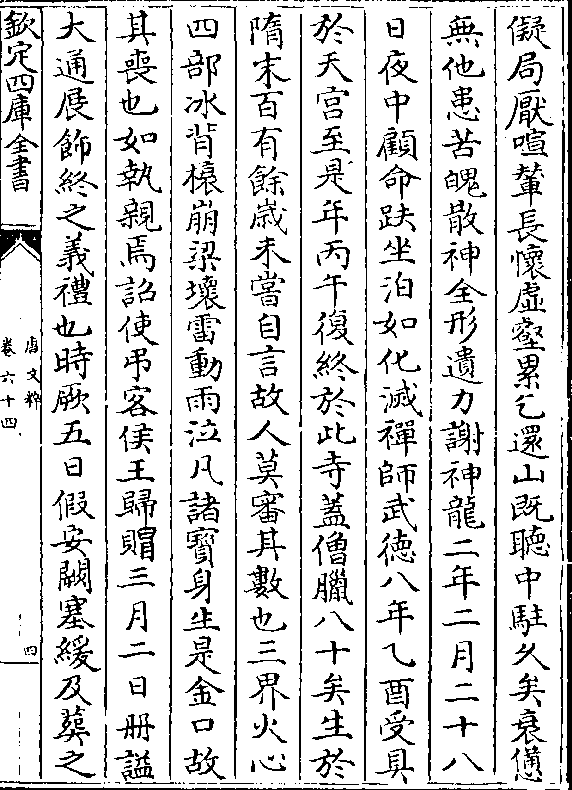 儗局厭喧輦長懷虛壑累乞還山既聽中駐久矣衰憊
無他患苦魄散神全形遺力謝神龍二年二月二十八
日夜中顧命趺坐泊如化滅禪師武德八年乙酉受具
於天宮至是年丙午復終於此寺蓋僧臘八十矣生於
隋末百有餘歲未嘗自言故人莫審其數也三界火心
四部冰背榱崩梁壞雷動雨泣凡諸寶身生是金口故
其喪也如執親焉詔使弔客侯王歸賵三月二日冊謚
大通展飾終之義禮也時厥五日假安闕塞緩及葬之
欽定四庫全書
唐文粹
卷六十四
四